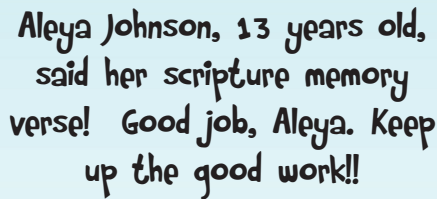 Aleya Johnson, 13 years old,
said her scripture memory
verse! Good job, Aleya. Keep
up the good work!!